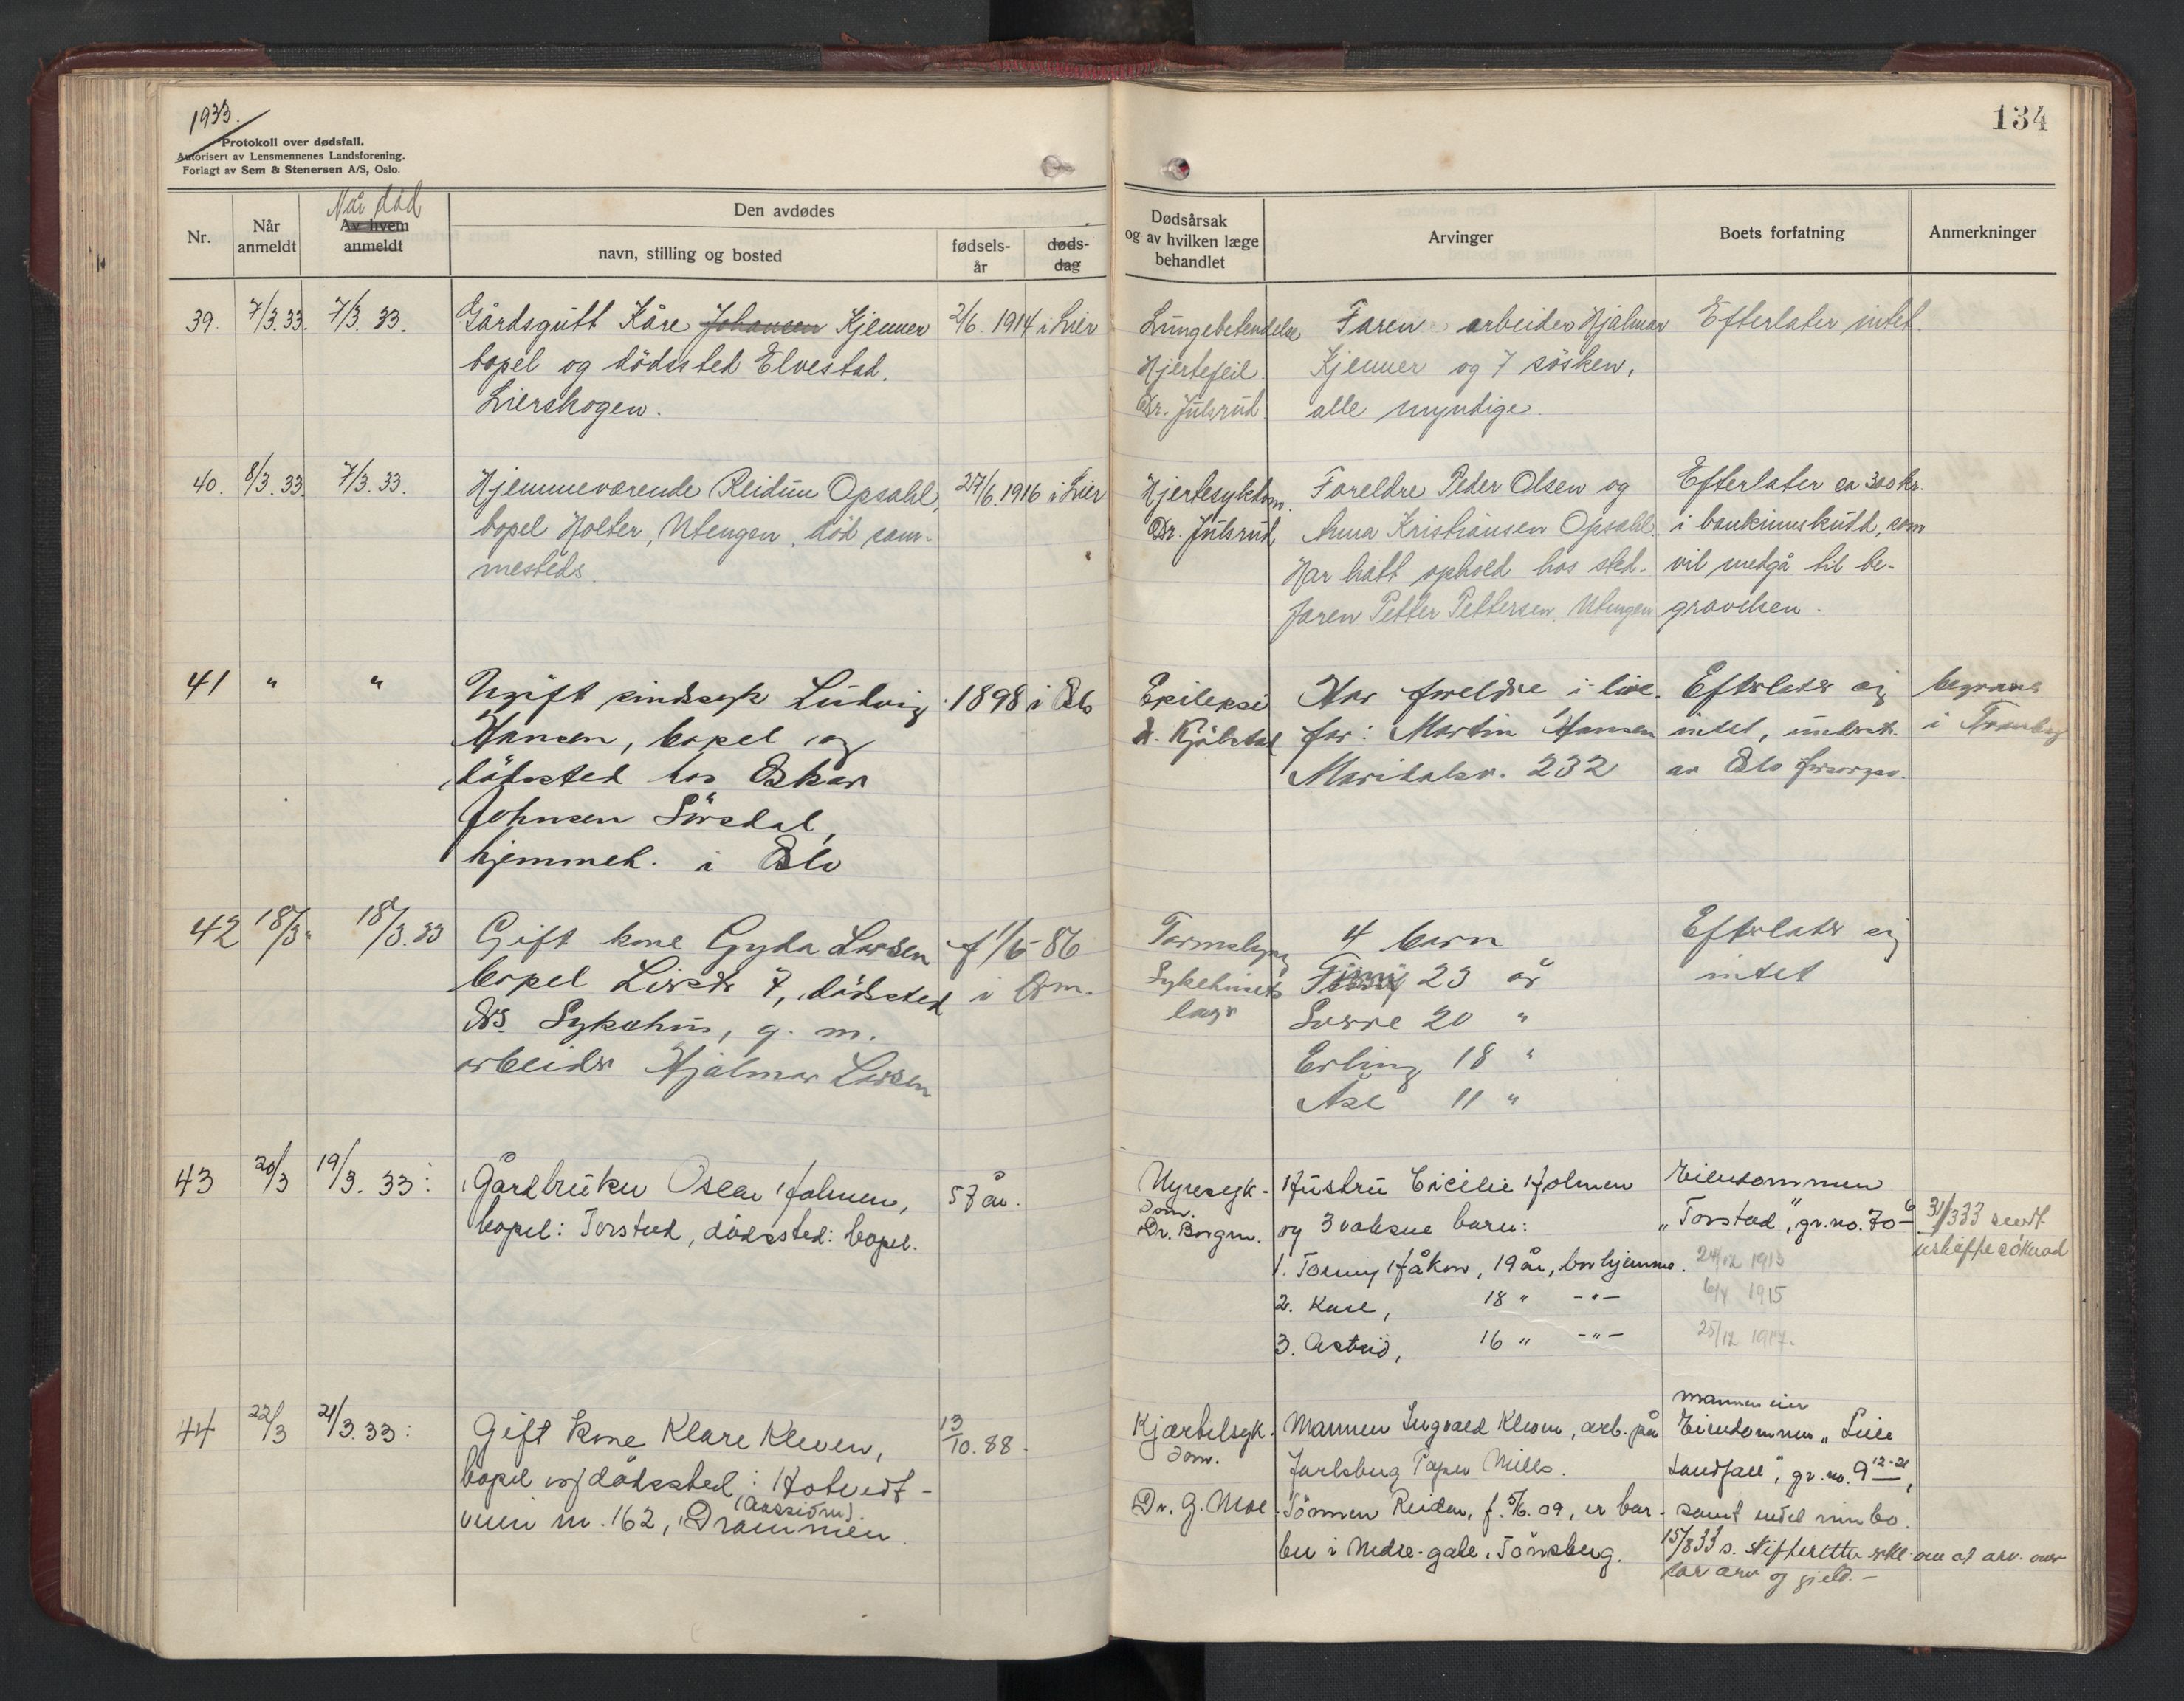 1933.
Protokoll over dødsfall.
Autorisert av Lensmennenes Landsforening.
Forlagt av Sem & Stenersen A/S, Oslo.
134
Nr.
Når anmeldt
Når död
Av hvem anmeldt
Den avdødes
navn, stilling og bosted
fødsels-
år
døds-
dag
Dødsårsak
og av hvilken læge
behandlet
Arvinger
Boets forfatning
Anmerkninger
39. 7/3.33. 7/3.33. Gårdsgutt Kåre Johansen Kjenner 2/6.1914 i Lier
bopel og dödssted Elvestad.
Lierskogen.
Lungebetendelse
Hjertefeil.
Dr. Julsrud.
Faren arbeider Hjalmar
Kjenner og 7 sösken,
alle myndige.
Efterlater intet.
40. 8/3.33. 7/3.33. Hjemmeværende Reidun Opsahl, 27/6.1916 i Lier
bopel Holter, Utengen, död sam-
mesteds.
Hjertesykdom.
Dr. Julsrud
Foreldre Peder Olsen og
Anna Kristiansen Opsahl.
Har hatt ophold hos sted-
faren Petter Pettersen, Utengen
Efterlater ca 300 kr.
i bankinnskudd, som
vil medgå til be-
gravelsen.
41 " " Ugift sindssyk Ludvig 1898 i Oslo
Hansen, bopel og
dödssted hos Oskar
Johnsen Sörsdal,
hjemmeh. i Oslo
Epilepsi
d. Kjölstad
Har foreldre i live.
far: Martin Hansen
Maridalsv. 232
Efterlater sig
intet, underst.
av Oslo forsorgsv.
begraves
i Tranby
42 18/3 " 18/3.33 Gift kone Gyda Larsen f 1/5 - 86
bopel Lierstr 7, dödssted i Drm.
Ds. Sykehus, g. m.
arbeider Hjalmar Larsen
Sykehusets
læge
4 barn
23 år
Sverre 20 "
Erling 18 "
Åse 11 "
Efterlater sig
intet
43 20/3 19/3.33: Gårdbruker Oscar Holmen, 57 år.
bopel: Torstad, dödssted: bopel.
Nyresyk-
dom.
Dr. Borgen.
Hustru Cicilie Holmen
og 3 voksne barn:
1. Tormy Håkon, 19 år, bor hjemme. 24/12 1913
2. Kåre, 18 " -"- 6/4 1915
3. Astrid, 16 " -"- 25/12 1917.
Eiendommen
"Torstad", gr. no. 70-6
31/3 33 sendt
uskifte söknad
44 22/3 21/3.33: Gift kone Klare Kleven, 13/10.88.
bopel og dödssted: Hotvedt-
veien nr. 162, (Aassiden). Drammen.
Hjertelsyk-
dom.
Dr. G. Moe
Mannen Ingvald Kleven, arb. på
Jarlsberg Paper Mills.
Sönnen Reidar, f. 5/6.09, er bar-
ber i Nedre-gate, Tönsberg.
mannen eier
Eiendommen "Lille
Landfall", gr. no. 9 12-21,
samt endel innbo.
15/8 33 s. Skifteretten erkl. om at arv. over-
tar arv og gjeld.-